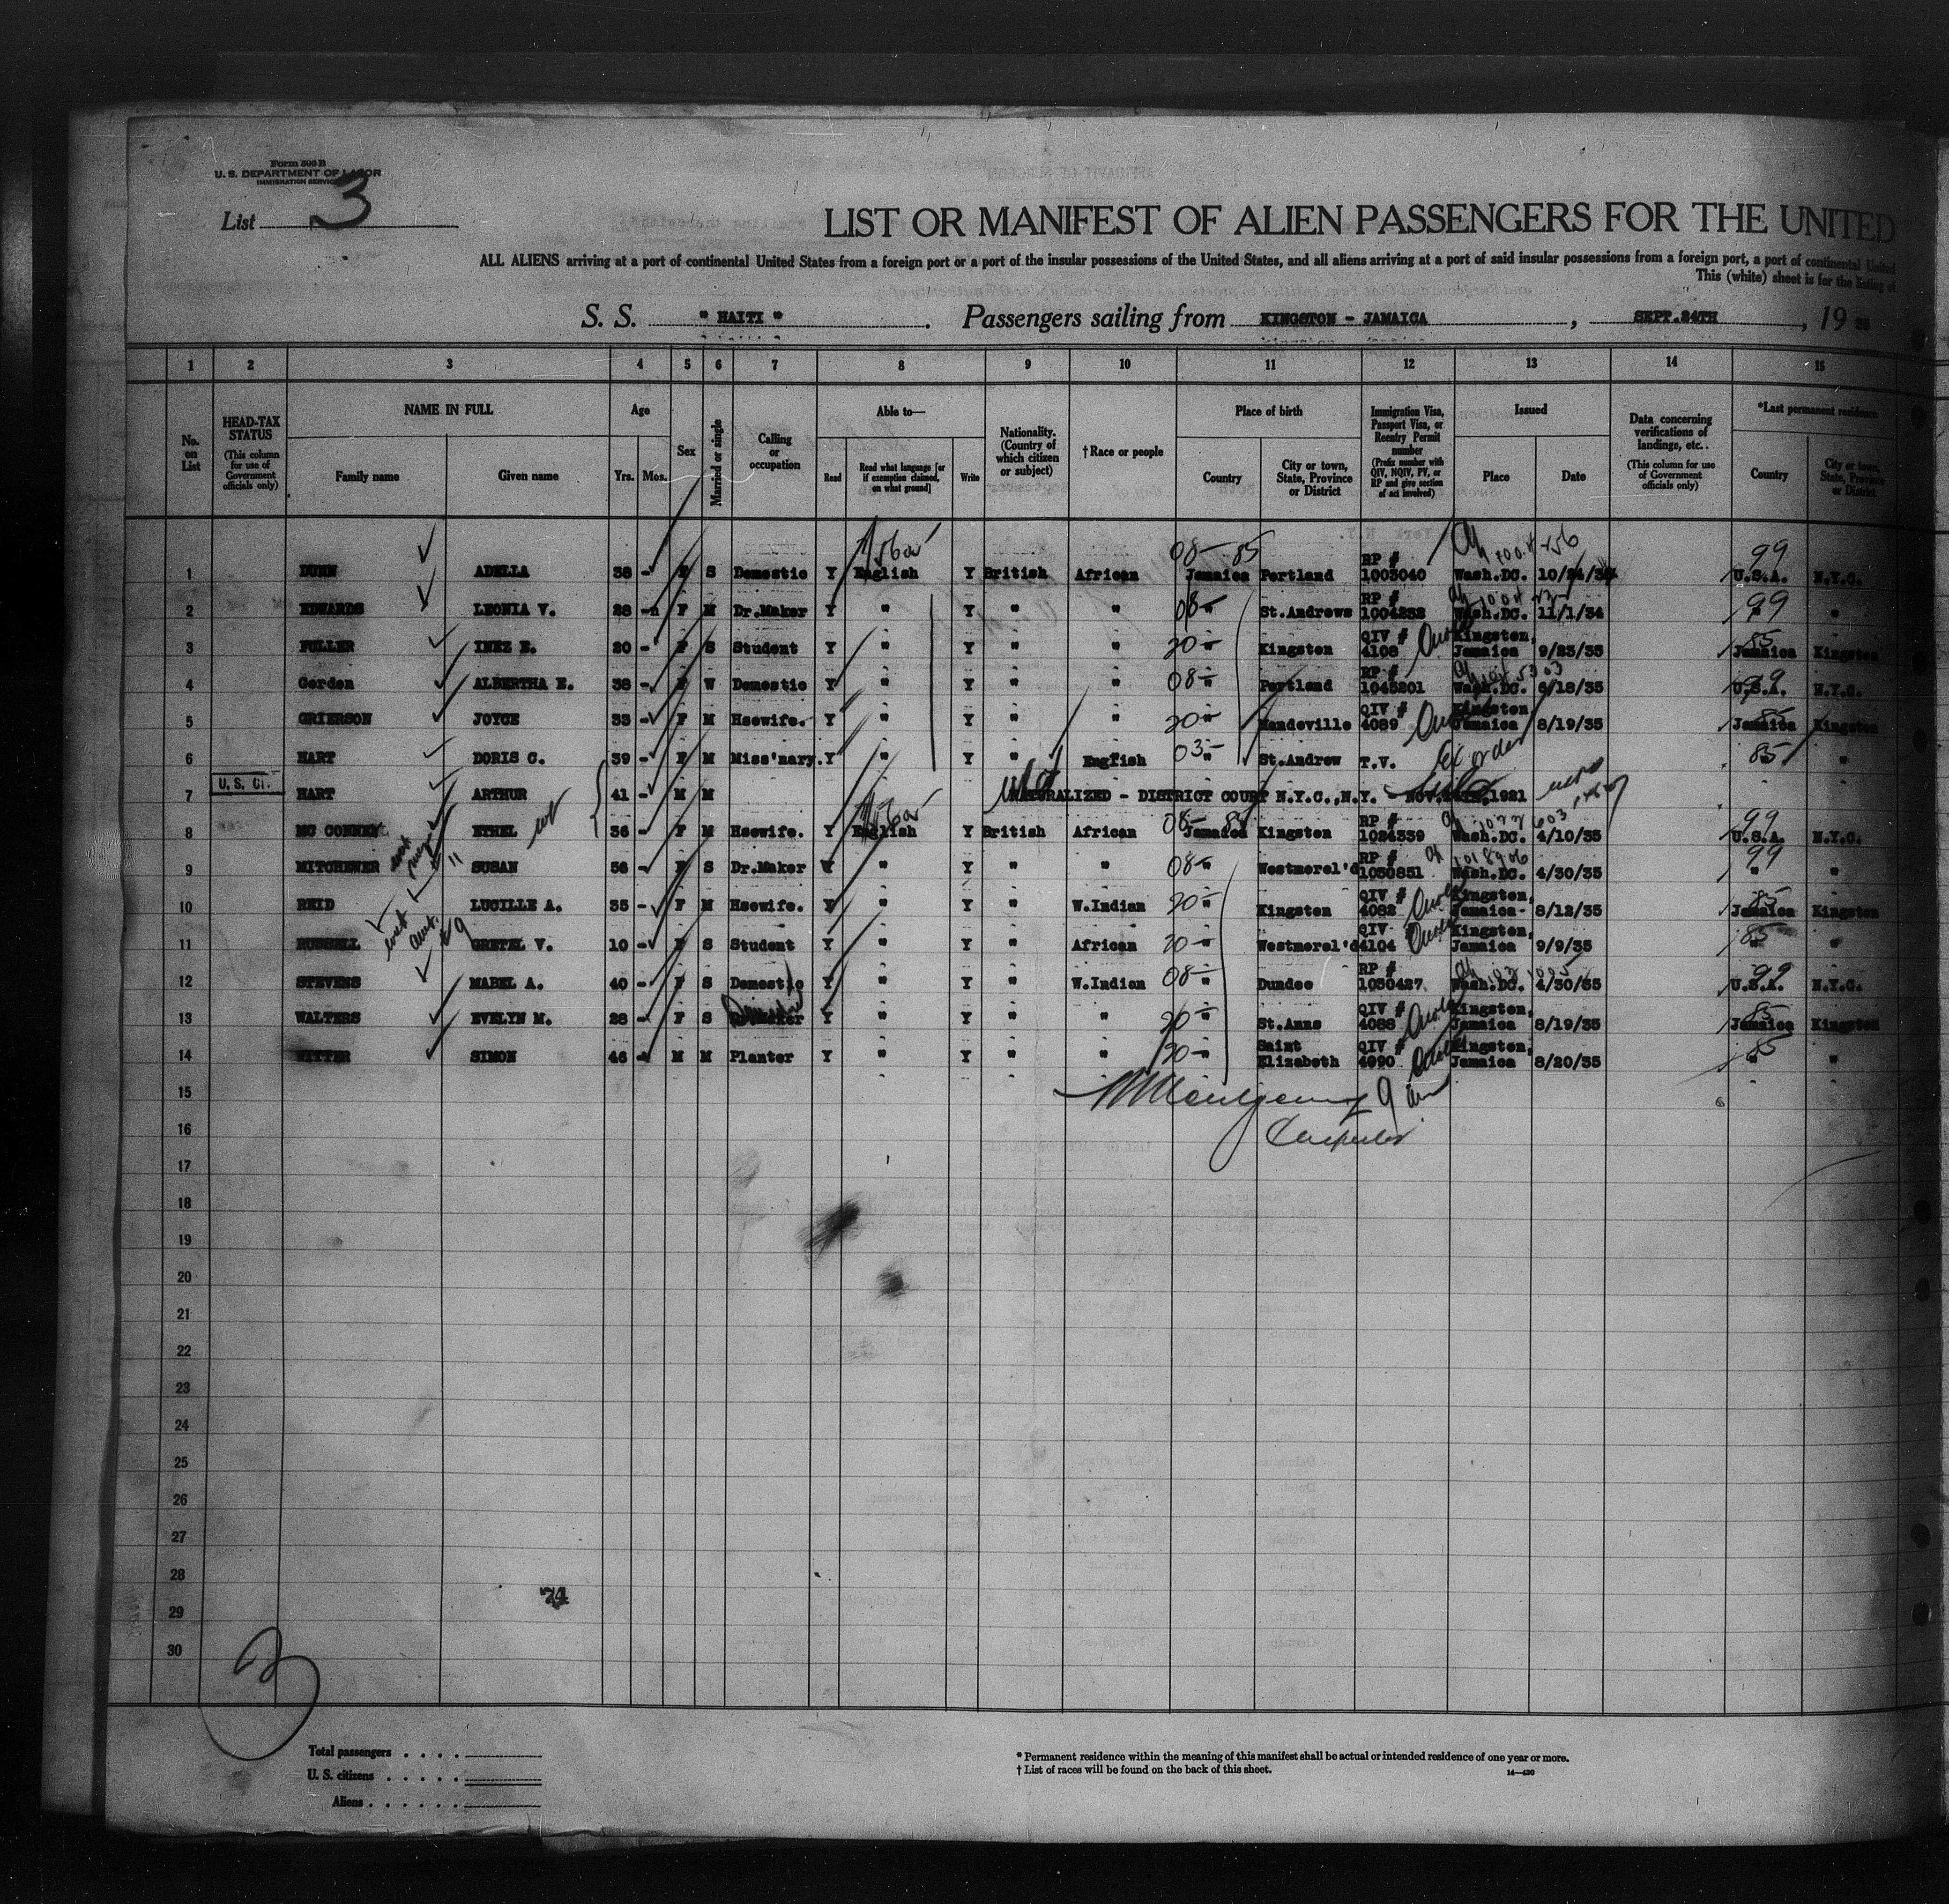 Form 500 B
U. S. DEPARTMENT OF LABOR
IMMIGRATION SERVICE
List 3
LIST OR MANIFEST OF ALIEN PASSENGERS FOR THE UNITED
ALL ALIENS arriving at a port of continental United States from a foreign port or a port of the insular possessions of the United States, and all aliens arriving at a port of said insular possessions from a foreign port, a port of continental United
This (white) sheet is for the listing of
S. S. " HAITI " . Passengers sailing from KINGSTON - JAMAICA , SEPT.24TH , 19 35
1 2 3 4 5 6 7 8 9 10 11 12 13 14 15
No. on List
HEAD-TAX STATUS (This column for use of Government officials only)
NAME IN FULL
Family name Given name
Age
Yrs. Mos.
Sex
Married or single
Calling or occupation
Able to—
Read Read what language [or if exemption claimed, on what ground] Write
Nationality. (Country of which citizen or subject)
† Race or people
Place of birth
Country City or town, State, Province or District
Immigration Visa, Passport Visa, or Reentry Permit number (Prefix number with QIV, NQIV, PV, or RP and give section of act involved)
Issued
Place Date
Data concerning verifications of landings, etc. (This column for use of Government officials only)
*Last permanent residence
Country City or town, State, Province or District
1 DUNN ADELLA 38 - F S Domestic Y English Y British African 08- 85 Jamaica Portland RP # 1003040 Wash.DC. 99 U.S.A. N.Y.C.
2 EDWARDS LEONIA V. 28 - F M Dr.Maker Y " Y " " 08- " St.Andrews RP # 1004232 Wash.DC. 11/1/34 99 " "
3 FULLER INEZ E. 20 - F S Student Y " Y " " 20- " Kingston QIV # 4108 Kingston, Jamaica 9/23/35 85 Jamaica Kingston
4 Gordon ALBERTHA E. 38 - F W Domestic Y " Y " " 08- " Portland RP # 1045201 Wash.DC. 6/18/35 99 U.S.A. N.Y.C.
5 GRIERSON JOYCE 33 - F M Hsewife. Y " Y " " 20- " Mandeville QIV # 4089 Kingston Jamaica 8/19/35 85 Jamaica Kingston
6 HART DORIS C. 39 - F M Miss'nary. Y " Y " English 03- St.Andrew T.V. 85 "
U. S. CI.
7 HART ARTHUR 41 - M M NATURALIZED - DISTRICT COURT N.Y.C.,N.Y. 1921
8 MC CONNEY ETHEL 36 - F M Hsewife. Y English Y British African 08- Jamaica Kingston RP # 1024339 Wash.DC. 4/10/35 99 U.S.A. N.Y.C.
9 MITCHENER SUSAN 56 - F S Dr.Maker Y " Y " " 08- " Westmorel'd RP # 1030851 Wash.DC. 4/30/35 99 " "
10 REID LUCILLE A. 35 - F M Hsewife. Y " Y " W.Indian 20- " Kingston QIV # 4082 Kingston, Jamaica- 8/12/35 85 Jamaica Kingston
11 RUSSELL GRETEL V. 10 - F S Student Y " Y " African 20- " Westmorel'd QIV 4104 Kingston, Jamaica 9/9/35 85 " "
12 STEVENS MABEL A. 40 - F S Domestic Y " Y " W.Indian 08- " Dundee RP # 1030427 Wash.DC. 4/30/35 99 U.S.A. N.Y.C.
13 WALTERS EVELYN M. 28 - F S Y " Y " " 20- " St.Anns QIV # 4088 Kingston, Jamaica 8/19/35 85 Jamaica Kingston
14 SIMON 46 - M M Planter Y " Y " " 20- " Saint Elizabeth QIV # 4090 Kingston, Jamaica 8/20/35 85 " "
15
16
17
18
19
20
21
22
23
24
25
26
27
28
29
30
74
Total passengers . . . .
U. S. citizens . . . . .
Aliens . . . . . .
* Permanent residence within the meaning of this manifest shall be actual or intended residence of one year or more.
† List of races will be found on the back of this sheet.
14—430